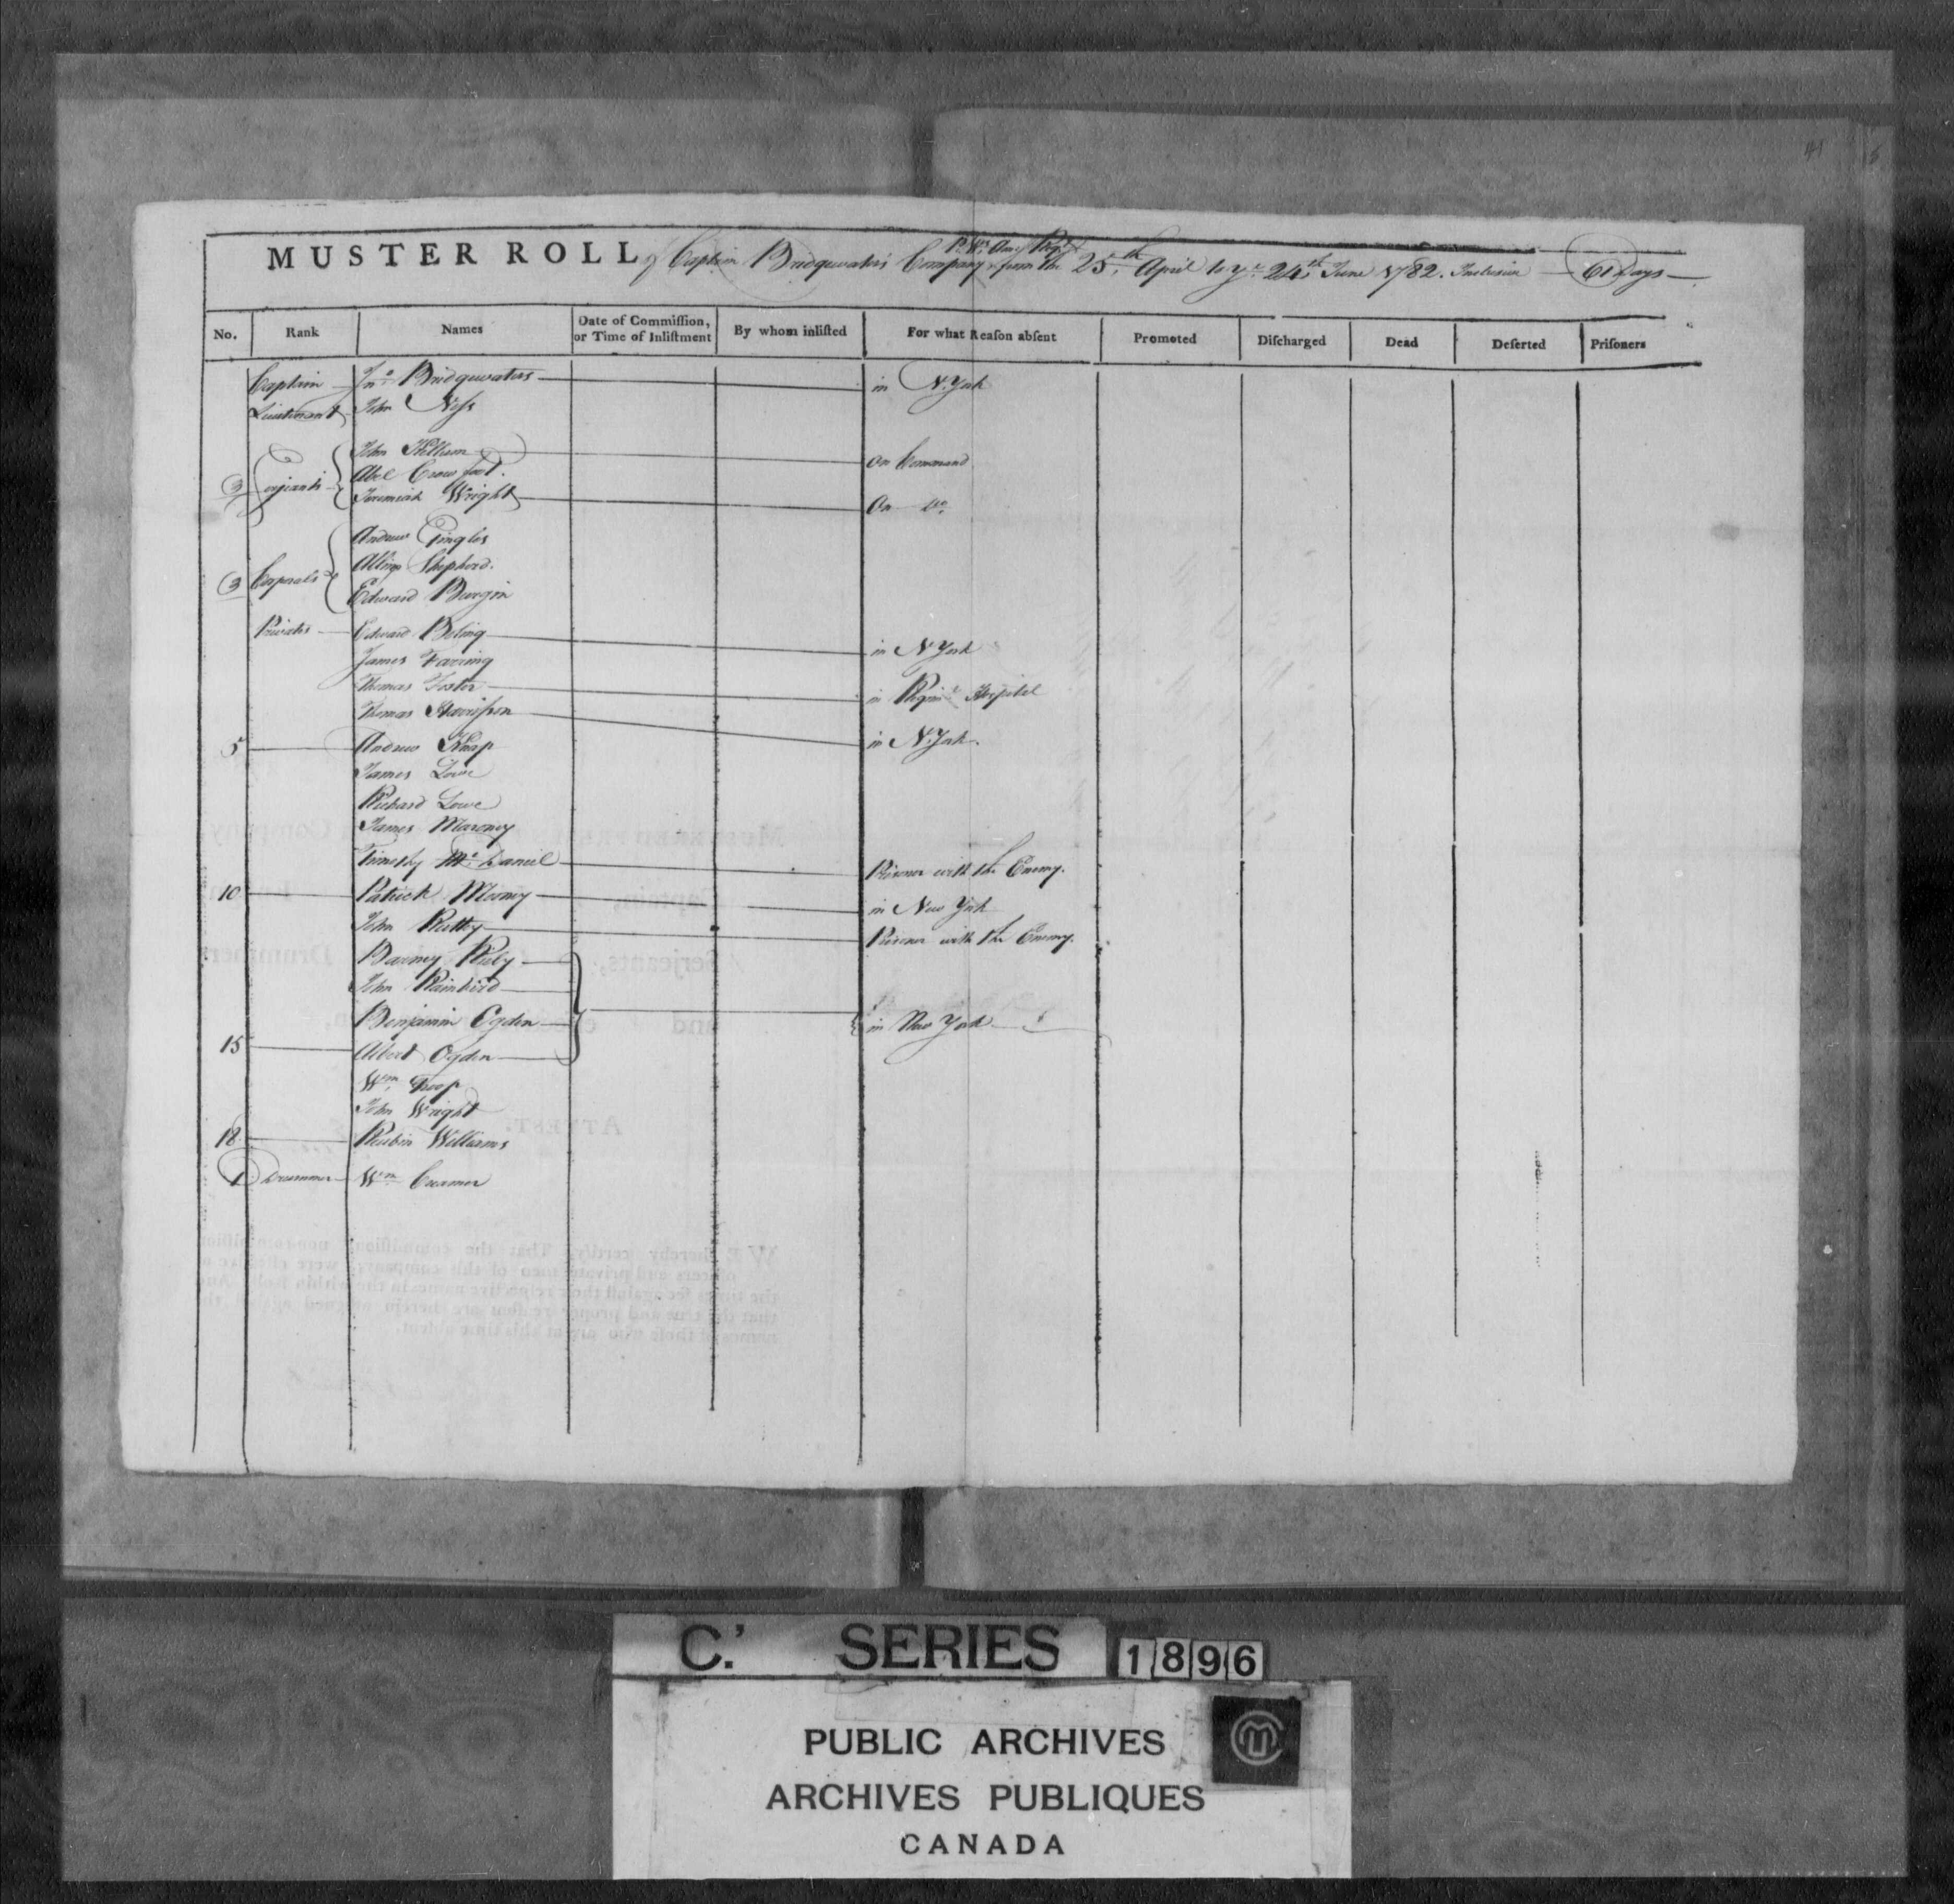 41
MUSTER ROLL of Captain Bridgewaters Company P. Ws. Amn. Regt. from the 25th April to ye 24th June 1782. Inclusive — 61 Days —
No. Rank Names Date of Commiſſion, or Time of Inliſtment By whom inliſted For what Reaſon abſent Promoted Diſcharged Dead Deſerted Priſoners
Captain Jno. Bridgewaters in N. York
Lieutenant John Neſs
John on Command
3 Serjeants Abel Crowfoot.
Jeremiah Wright On do.
Andrew Gingles
3 Corporals Shepherd.
Edward Burgin
Privates Edward Boling in N York
James Farring
Thomas Foster in Regimt. Hospital
Thomas Harriſson in N. York.
5 Andrew Knap
James Lowe
Richard Lowe
James Maroney
Timothy Mc. Daniel Prisoner with the Enemy.
10 Patrick Mooney in New York
John Ruttey Prisoner with the Enemy.
Barney Riely
John Rainbird
Benjamin Ogden in New York
15 Albert Ogden
Wm. Troop
John Wright
18 Reubin Williams
1 Drummer Wm. Creamer
C.' SERIES 1896
PUBLIC ARCHIVES
ARCHIVES PUBLIQUES
CANADA